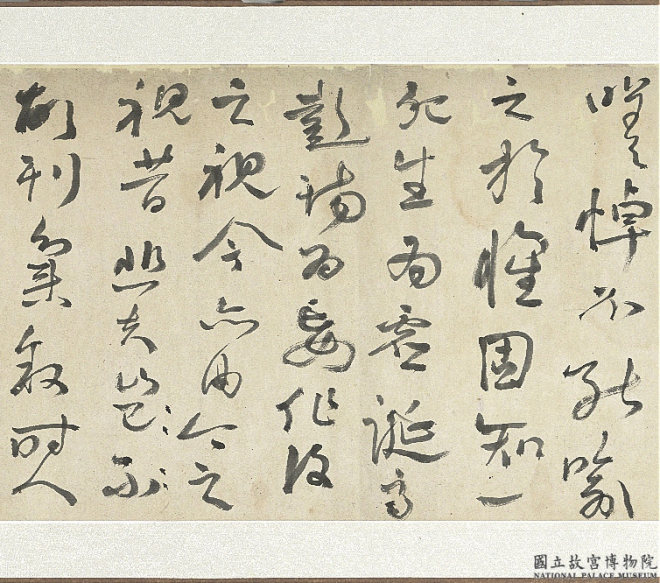 嗟悼不能喻
之於懷固知一
死生為虛誕齊
彭殤為妄作後
之視今亦由今之
視昔悲夫不
故列叙時人
國立故宮博物院
NATIONAL PALACE MUSEUM